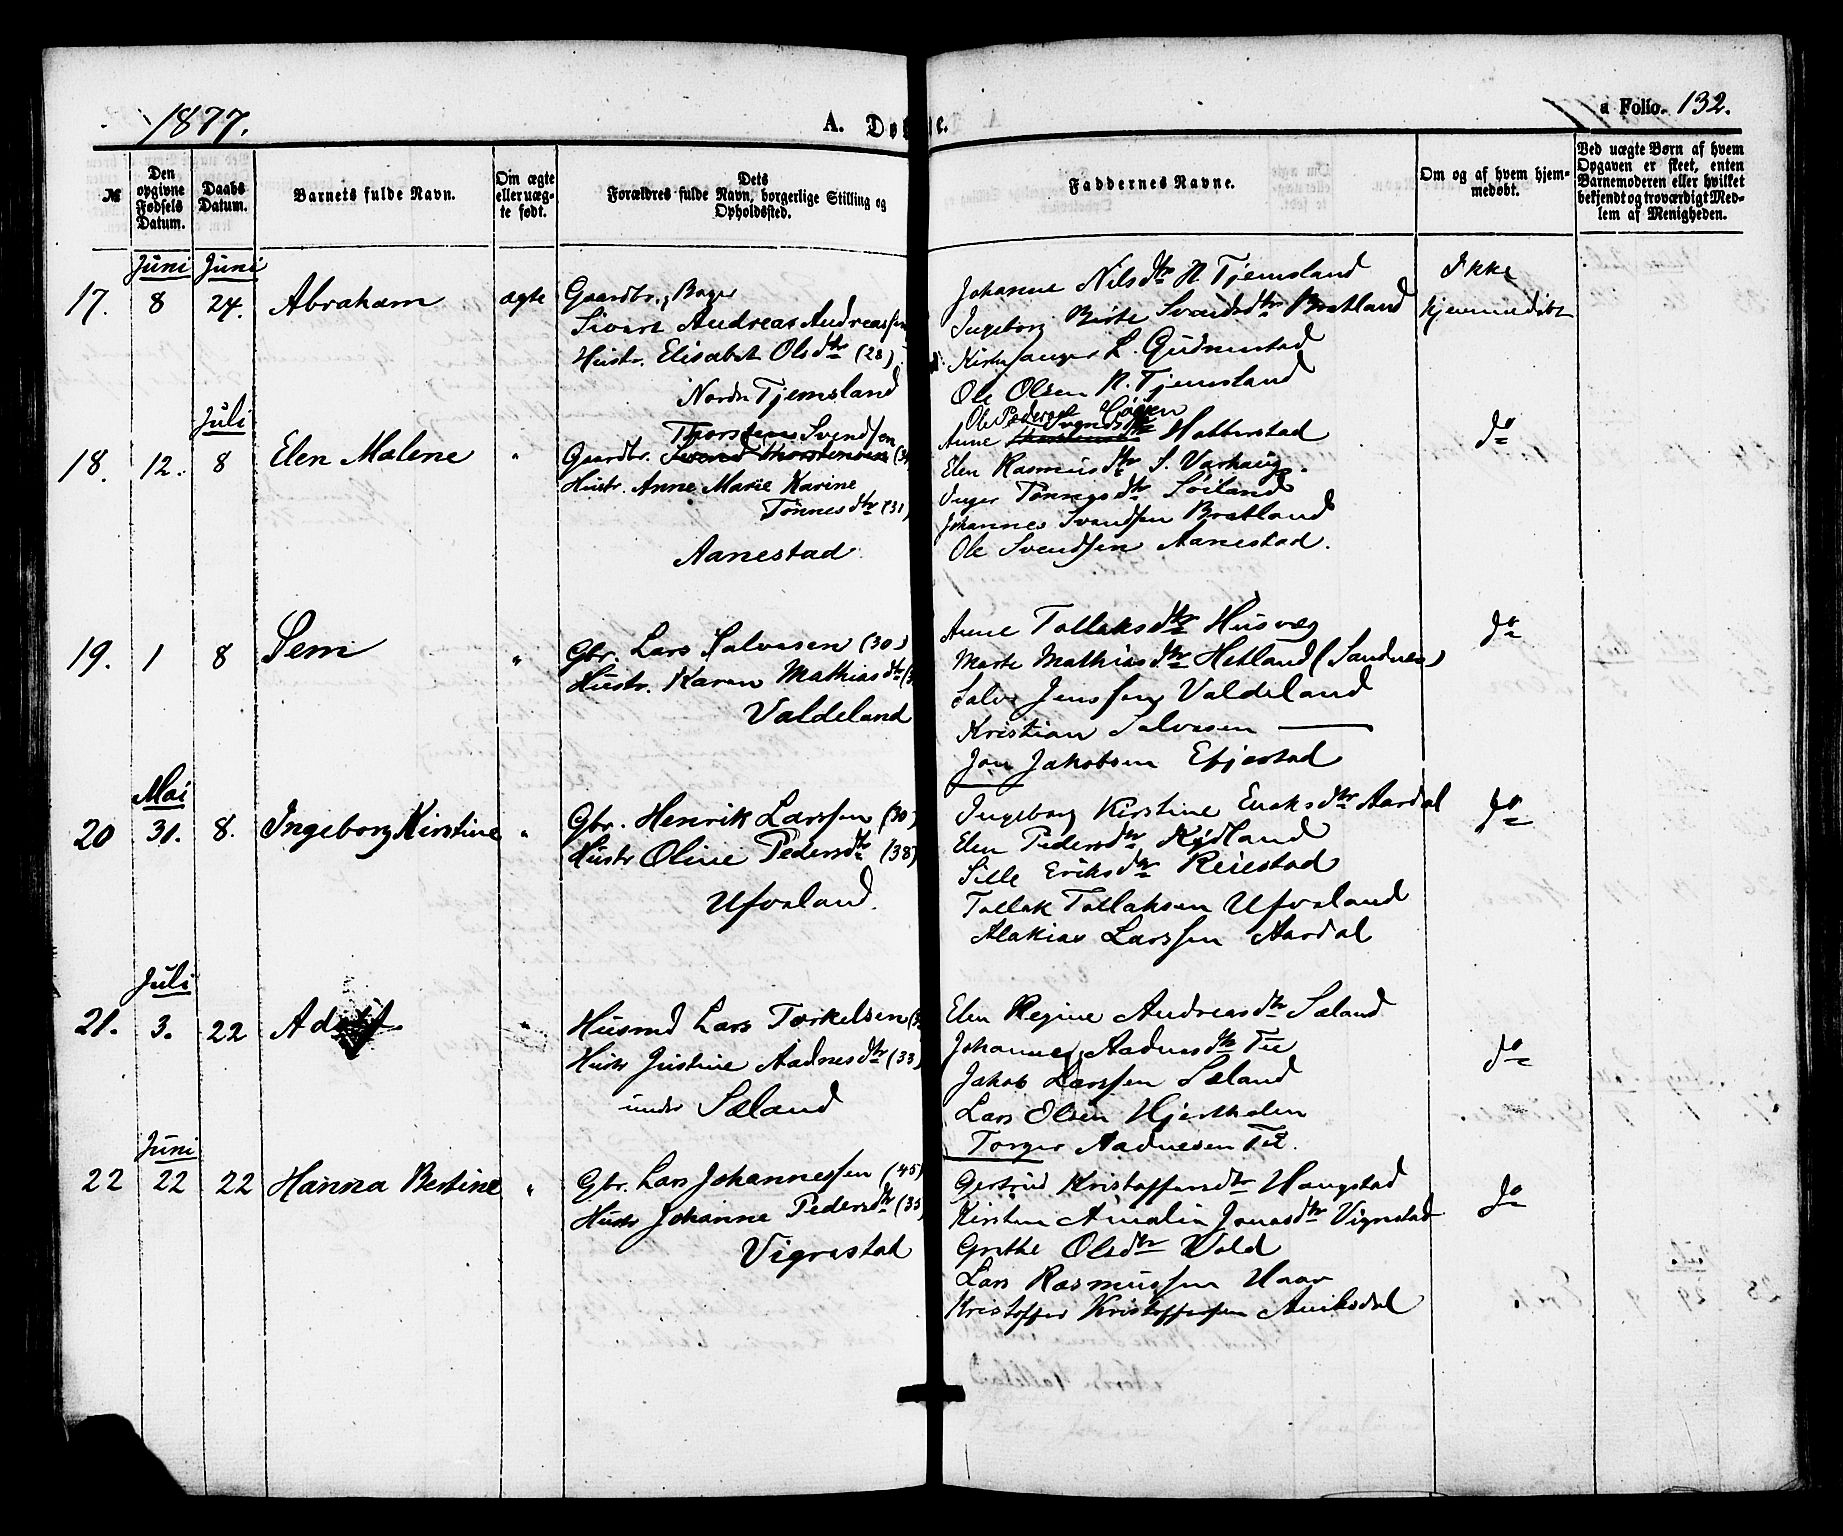 1877.
A. Dø e.
a Folio. 132.
№
Den opgivne Fødsels Datum.
Daabs Datum.
Barnets fulde Navn.
Om ægte eller uægte født.
Dets Forældres fulde Navn, borgerlige Stilling og Opholdssted.
Faddernes Navne.
Om og af hvem hjemmedøbt.
Ved uægte Børn af hvem Opgaven er skeet, enten Barnemoderen eller hvilket bekjendt og troværdigt Medlem af Menigheden.
Juni Juni
17. 8 24. Abraham ægte
Gaardbr.
Sivert Andreas Andreassen
Hustr. Elisabet Olsdtr (28)
Nordr Tjemsland
Johanne Nilsdtr N Tjemsland
Ingeborg Birte Svendsdtr Bratland
Kirkesanger L. Gudmestad
Ole Olsen N. Tjemsland
Ikke
hjemmedøbt
Juli
18. 12. 8 Elen Malene "
Thorsten Svendsen
Gaardbr. Svend Thorstensen
Hustr. Anne Marie Karine
Tønnesdtr (31)
Aanestad
Anne Hatterstad
Elen Rasmusdtr S. Varhaug.
Inger Tønnesdtr Loiland
Johannes Svendsen Bratland
Ole Svendsen Aanestad.
do
19. 1 8 Sem "
Gbr. Lars Salvesen (30)
Hustr. Karen Mathiasdtr
Valdeland
Anne Tollaksdtr Husveg
Marte Mathiasdtr Hetland (Sandnes)
Salve Jenssen Valdeland
Kristian Salvesen —
Jon Jakobsen Efjestad
do
Mai
20 31. 8. Ingeborg Kirstine "
Gbr. Henrik Larssen (30)
Hustr Oline Pedersdtr (38)
Ufvaland.
Ingeborg Kirstine Eriksdtr Aardal
Elen Pedersdtr Kydland
Sille Eriksdtr Reiestad
Tollak Tollaksen Ufvaland
Malakias Larssen Aardal
do
Juli
21. 3. 22 Adolf
Husmd Lars Torkelsen
Hustr Justine Aadnesdtr (33)
under Sæland
Elen Regine Andreasdtr Sæland
Johanne Aadnesdtr Tu
Jakob Larssen Sæland
Lars Olsen
Torger Aadnesen Tu.
do
Juni
22 22 22 Hanna Bertine "
Gbr. Lars Johannessen (45)
Hustr Johanne Pedersdtr (35)
Vigrestad
Gertrud Kristoffersdtr Haugstad
Kirsten Amalia Jonasdtr Vigrestad
Grethe Olsdtr Vold
Lars Rasmussen Haar
Kristoffer Kristoffersen Auiksdal
do